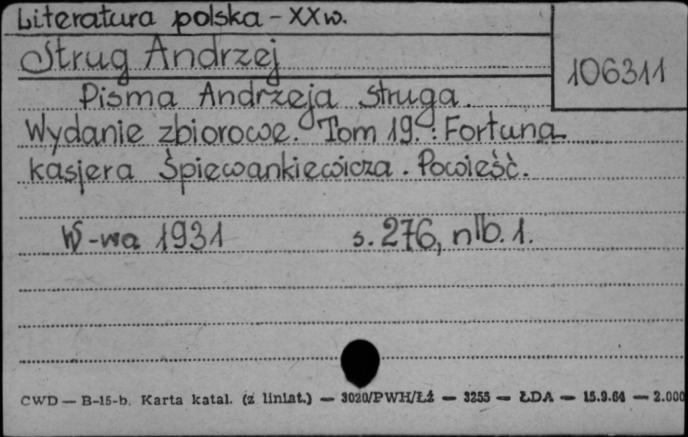 Literatura polska - XX w.
Strug Andrzej
106311
Pisma Andrzeja Struga.
Wydanie zbiorowe. Tom 19.: Fortuna
kasjera Śpiewankiewicza. Powieść.
W-wa 1931 s. 276, nlb. 1.
CWD — B-15-b. Karta katal. (z liniat.) — 3020/PWH/Łź — 3255 — ŁDA — 15.9.64 — 2.000